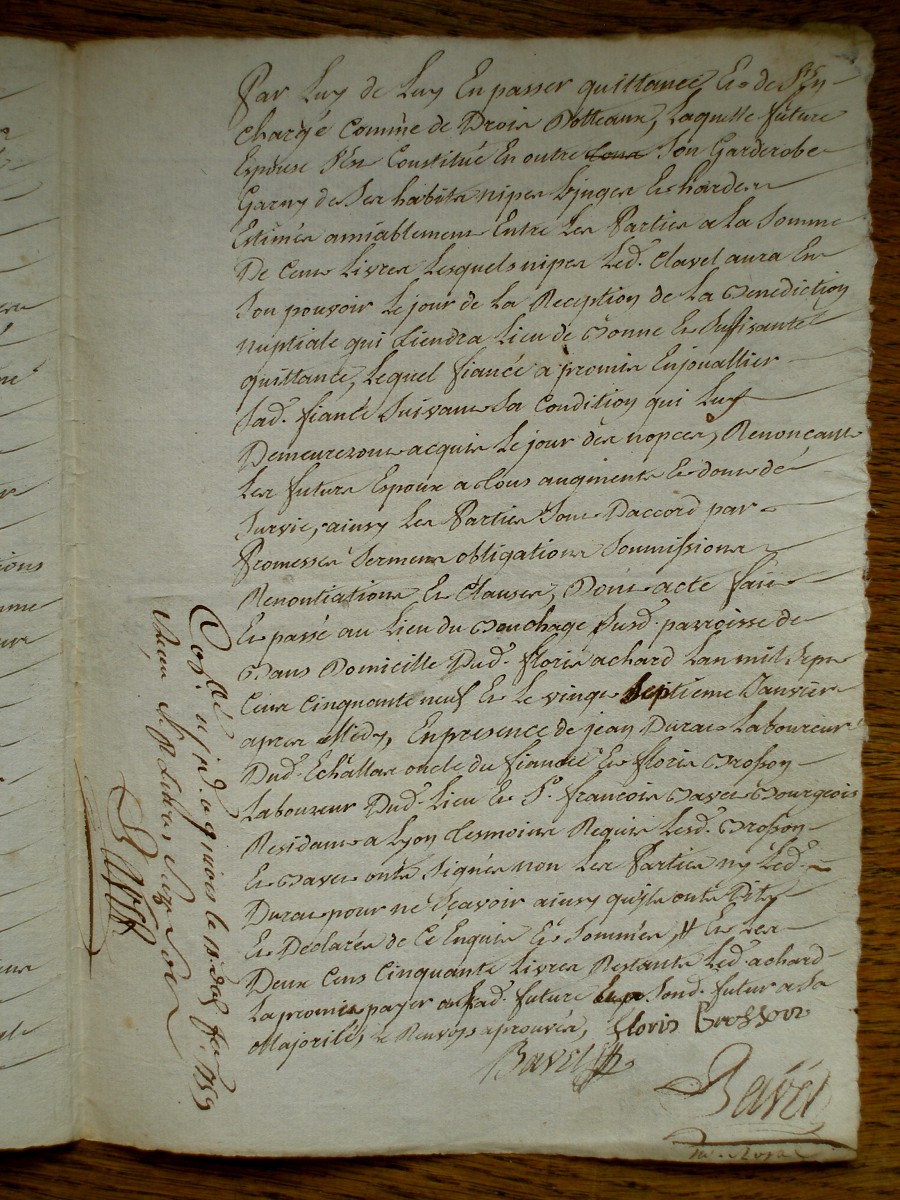 Par Luy de Luy En passer quittance, Et de S'en
chargé comme de Drois Dotteaux, Laquelle future
Espouse s'Est Constitué En outre tous Son Garderobe
Garny de Ses habits nipes Linges Et hardes
Estimés amiablement Entre Les Parties a La Somme
De Cent Livres Lesquels nipes Led. Clavel aura En
Son pouvoir Le jour de La Reception de La Benediction
nuptiale qui tiendra Lieu de Bonne Et Suffisante
quittance, Lequel fiancé a promis Enjouallier
Sad. fiancé Suivant Sa Condition qui Luy
Demeureront acquis Le jour des nopces, Renonçant
Les futurs Espoux a tous augments Et dont de
Survie, ainsy Les Parties Sont D'accord par
Promesses Serments obligations Soumissions
Renontiations Et Clauses, Dont acte fait
Et passé au Lieu du Bouchage Susd. parroisse de
Bans Domicille Dud. floris achard L'an mil Sept
Cent Cinquante neuf Et Le vingt Septieme Janvier
apres Midy, En presence de jean Durat Laboureur
Dud. Echallas oncle du fiancé Et floris Brosson
Laboureur Dud. Lieu Et Sr. françois Bavet Bourgeois
Residant a Lyon tesmoins Requis Lesd. Brosson
Et Bavet onts Signés non Les Parties ny Led.
Durat pour ne Sçavoir ainsy qu'ils onts Dit
Et Declarés de Ce Enquis Et Sommés, # Et Les
Deux Cens Cinquante Livres Restants Led. achard
La promis payer a Sad. future Sond. futur a Sa
Majorité, Le Renvoys aprouvés, floris Brosson
Bavet
Bavet
Conllé a
le fer 1759
Reçu